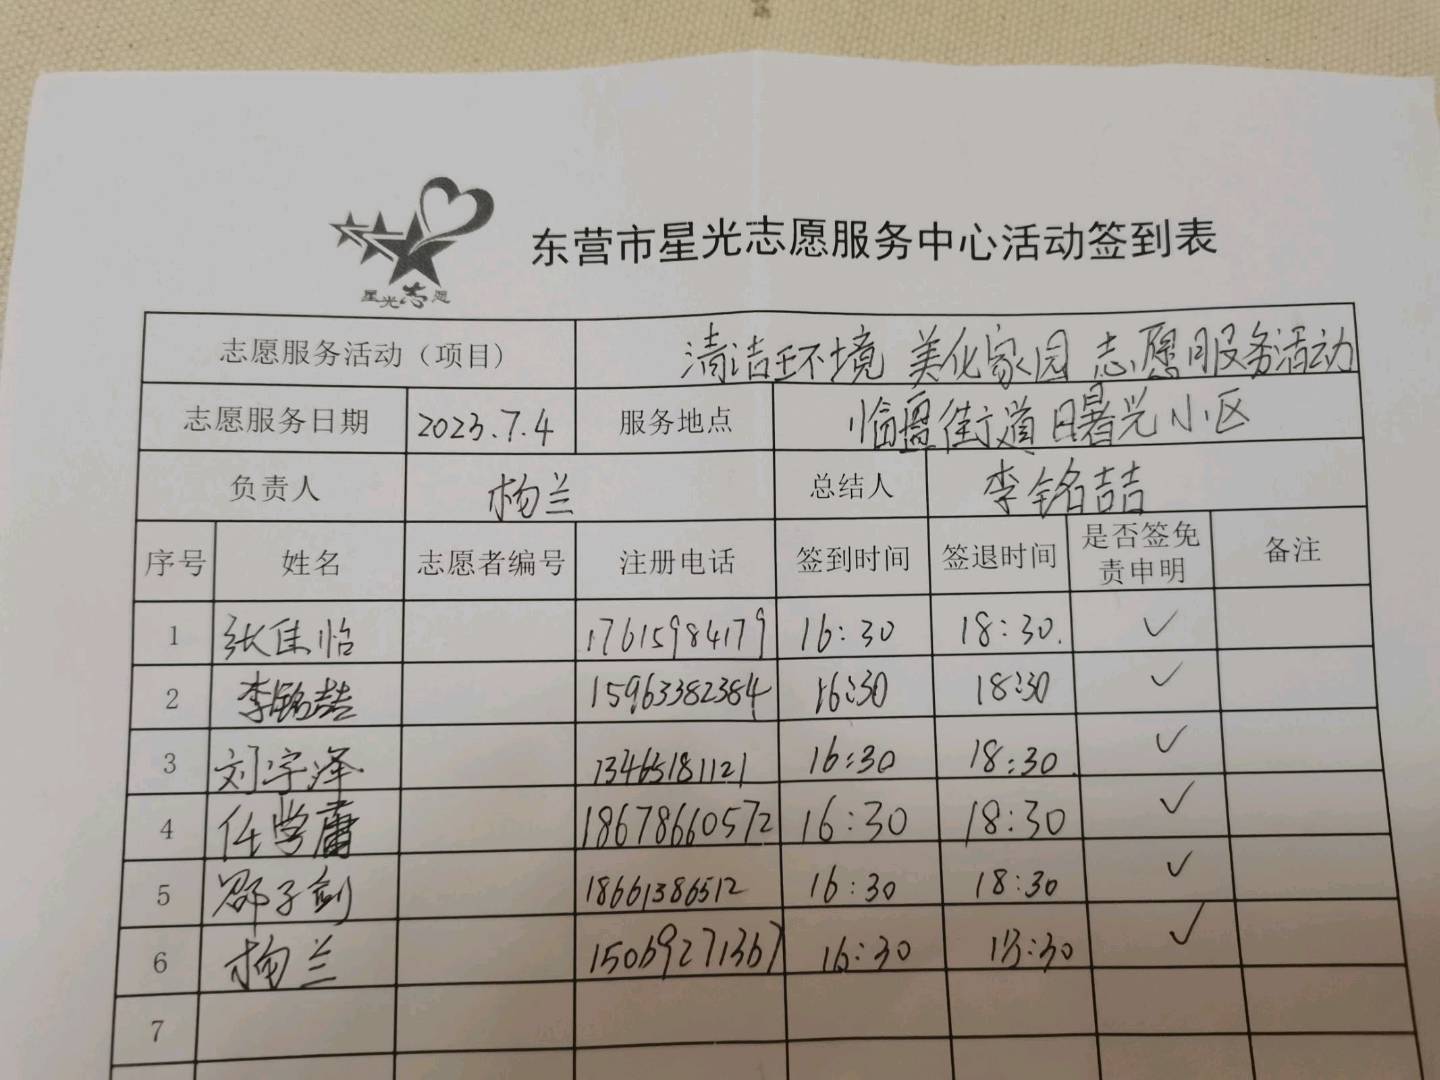 星光志愿
东营市星光志愿服务中心活动签到表
志愿服务活动（项目） 清洁环境 美化家园 志愿服务活动
志愿服务日期 2023.7.4 服务地点 临盘街道曙光小区
负责人 杨兰 总结人 李铭喆
序号 姓名 志愿者编号 注册电话 签到时间 签退时间 是否签免责申明 备注
1 张佳怡 17615984179 16:30 18:30. ✓
2 李铭喆 15963382384 16:30 18:30 ✓
3 刘宇泽 13465181121 16:30 18:30 ✓
4 任学庸 18678660572 16:30 18:30 ✓
5 邵子剑 18661386512 16:30 18:30 ✓
6 杨兰 15069271367 16:30 18:30 ✓
7